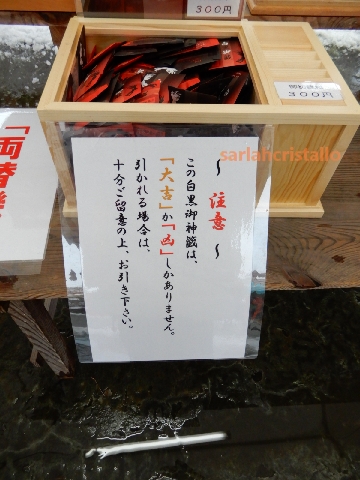 ３００円
３００円
「両替
sarlahcristallo
～ 注意 ～
この白黒御神籤は、
「大吉」か「凶」しかありません。
引かれる場合は、
十分ご留意の上、お引き下さい。